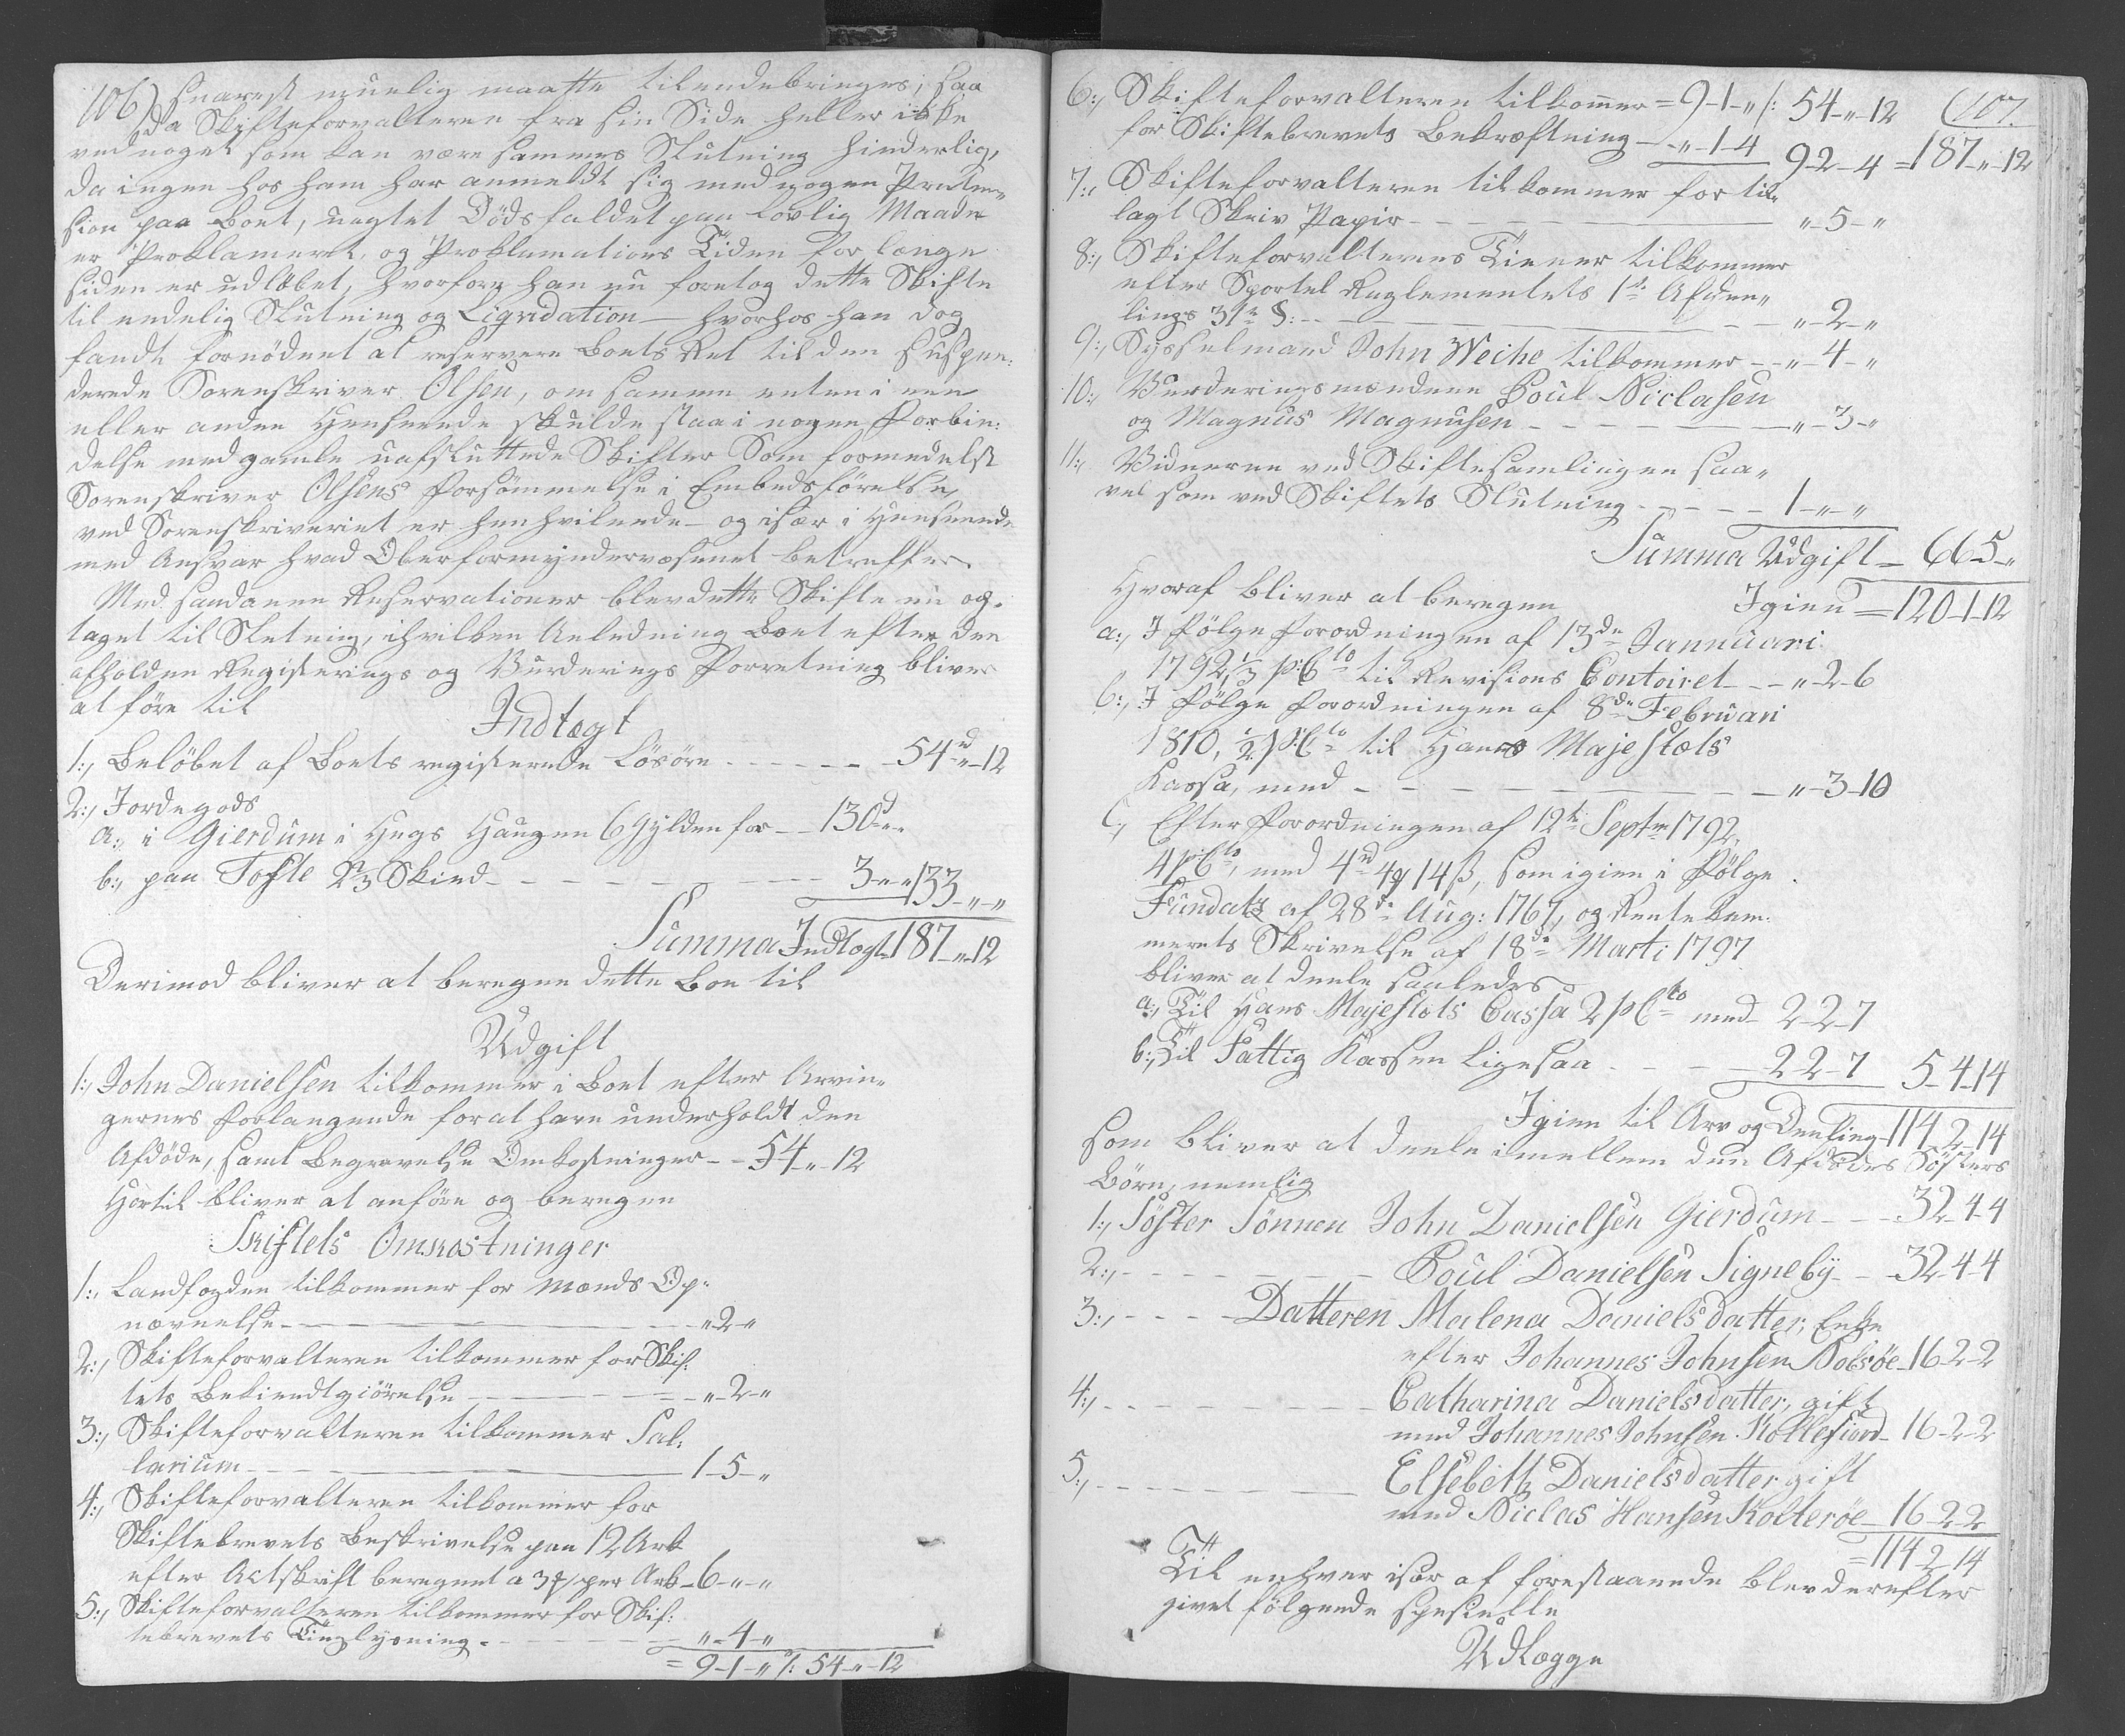 106)
snarest muelig maatte tilendebringes; saa
da Skifteforvalteren fra sin Side heller ikke
ved noget som kan være sammes Slutning hinderlig,
da ingen hos ham har anmeldt sig med nogen Præten„
sion paa Boet, uagtet Dödsfaldet paa lovlig Maade
er Proklameret, og Proklamations Tiden for længe
siden er udlöbet, hvorfore han nu foretog dette Skifte
til endelig Slutning og Liqvidation – hvorhos han dog
fandt fornödent at reservere Boets Ret til den suspen:
derede Sorenskriver Olsen, om samme enten i een
eller anden Henseende skulde staa i nogen Forbin:
delse med gamle uafsluttede Skifter som formedelst
Sorenskriver Olsens Forsömmelse i Embedsförelse,
ved Sorenskriveriet er henhvilende – og især i Henseende
med Ansvar hvad Oberformyndervæsenet betreffer.
Med saadanne Reservationer blev dette Skifte nu op„
taget til Sletning, ihvilken Anledning Boet efter den
afholdne Registerings og Vurderings Forretning bliver
at före til
Indtægt
1:, Belöbet af Boets registerede Lösöre - - - - - - 54 rd „ 12
2:, Jordegods
a:, i Gierdum i Hugs Haugen 6 Gylden for - - 130 d „ „
b:, paa Tofte 2⅔ Skind - - - - - - - - - 3 „ „ 133 „ „
Summa Indtægt 187 „ 12
Derimod bliver at beregne dette Boe til
Udgift
1:, John Danielsen tilkommer i Boet efter Arvin„
gernes Forlangende for at have underholdt den
Afdöde, samt Begravelse Omkostninger - - 54 „ 12
Hertil bliver at anföre og beregne
Skiftets Omkostninger
1:, Landfogden tilkommer for Mænds Op„
nævnelse - - - - - - - „ 2 „
2:, Skifteforvalteren tilkommer for Skif:
tets Bekiendtgiörelse - - - - - „ 2 „
3:, Skifteforvalteren tilkommer Sal:
larium - - - - - - - 1 - 5 - „
4:, Skifteforvalteren tilkommer for
Skiftebrevets Beskrivelse paa 12 Ark
efter Actskrift beregnet a 3 ₰ per Ark - 6 - „ - „
5:, Skifteforvalteren tilkommer for Skif:
tebrevets Tinglysning - - - - - „ - 4 - „
= 9 - 1 - „ /: 54 - „ - 12
(107.
6:, Skifteforvalteren tilkommer = 9 - 1 - „ /: 54 - „ - 12
for Skiftebrevets Bekræftning - „ - 1 - 4 9 - 2 - 4 = 187 - „ - 12
7:, Skifteforvalteren tilkommer for til„
lagt Skriv Papir - - - - - - - „ - 5 - „
8:, Skifteforvalterens Tiener tilkommer
efter Sportel Reglementets 1te Afdee„
lings 31te §: - - - - - - - „ - 2 - „
9:, Sysselmand John Weihe tilkommer - - „ - 4 - „
10:, Vurderingsmændene Poul Niclasen
og Magnus Magnusen - - - - - - „ - 3 - „
11:, Vidnerne ved Skiftesamlingen saa„
vel som ved Skiftets Slutning - - - - - 1 - „ - „
Summa Udgift - 66 5 - „
Igien = 120 - 1 - 12
Hvoraf bliver at beregne
a:, I Fölge Forordningen af 13de Jannuari
1792, ⅓ p:Cto til Revisions Contoiret - - „ - 2 - 6
b:, I Fölge Forordningen af 8de Februari
1810, ½ p:Cto til Hans Majestæts
Kassa, med - - - - - - - „ - 3 - 10
C:, Efter Forordningen af 12te Septr 1792,
4 p:Cto, med 4 rd 4 ₰ 14 ß, som igien i Fölge
Fundatz af 28de Aug: 1767, og Rente kam„
merets Skrivelse af 18de Marti 1797
bliver at deele saaledes
a:, Til Hans Majestæts Cassa 2 p Cto med 2 - 2 - 7
b:, Til Fattig Kassen ligesaa - - - - 2 - 2 - 7 5 - 4 - 14
Igien til Arv og Deeling 114 - 2 - 14
som bliver at deele imellem den Afdödes Söskers
Börn, nemlig
1:, Söster Sönnen John Danielsen Gierdum - - - 32 - 4 - 4
2:, - - - - - - Poul Danielsen Signeby - - 32 - 4 - 4
3:, - - - - Datteren Malena Danielsdatter, Enke
efter Johannes Johnsen Nolsöe - 16 - 2 - 2
4:, - - - - - - - - Catharina Danielsdatter, gift
med Johannes Johnsen Kollefiord - 16 - 2 - 2
5:, - - - - - - - Elsebeth Danielsdatter gift
med Niclas Hansen Kolteröe - 16 - 2 - 2
= 114 - 2 - 14
Til enhver især af forestaaende blev derefter
givet fölgende specielle
Udlægge